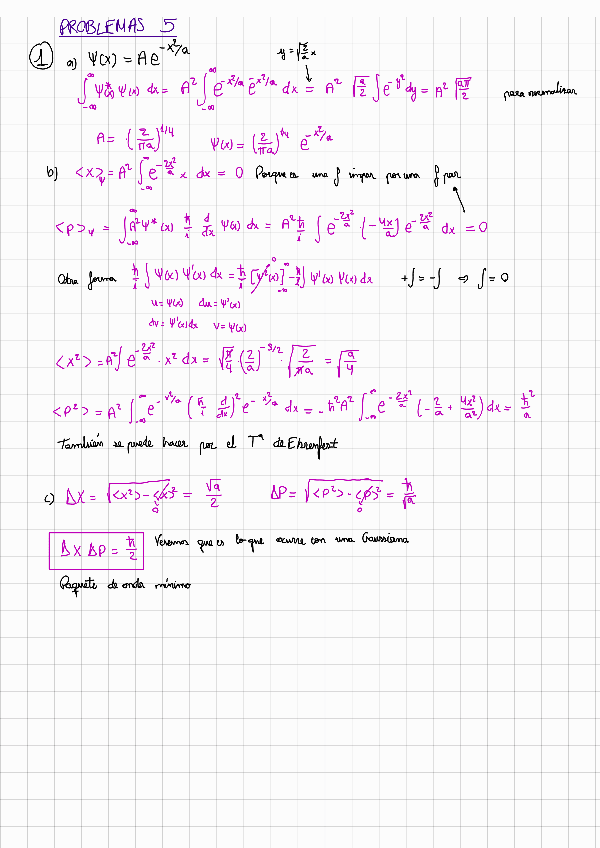 PROBLEMAS 5
1 a) Ψ(x) = A e^{-x²/a}
y = √(2/a) x
∫_{-∞}^{∞} Ψ*(x) Ψ(x) dx = A² ∫_{-∞}^{∞} e^{-x²/a} e^{-x²/a} dx = A² √(a/2) ∫ e^{-y²} dy = A² √(aπ/2) para normalizar
A = (2/πa)^{1/4} Ψ(x) = (2/πa)^{1/4} e^{-x²/a}
b) <x>_Ψ = A² ∫_{-∞}^{∞} e^{-2x²/a} x dx = 0 Porque es una f impar por una f par
<p>_Ψ = ∫_{-∞}^{∞} A² Ψ*(x) ħ/i d/dx Ψ(x) dx = A² ħ/i ∫ e^{-2x²/a} · (-4x/a) e^{-2x²/a} dx = 0
Otra forma ħ/i ∫ Ψ(x) Ψ'(x) dx = ħ/i [Ψ²(x)]_{-∞}^{∞} 0 - ħ/i ∫ Ψ'(x) Ψ(x) dx +∫ = -∫ ⇒ ∫ = 0
u = Ψ(x) du = Ψ'(x)
dv = Ψ'(x) dx v = Ψ(x)
<x²> = A² ∫ e^{-2x²/a} · x² dx = √π/4 · (2/a)^{-3/2} · √(2/πa) = √(a/4)
<p²> = A² ∫_{-∞}^{∞} e^{-x²/a} (ħ/i d/dx)² e^{-x²/a} dx = -ħ² A² ∫_{-∞}^{∞} e^{-2x²/a} (-2/a + 4x²/a²) dx = ħ²/a
También se puede hacer por el Tª de Ehrenfest
c) ΔX = √(<x²> - <x>²) = √a/2 ΔP = √(<p²> - <p>²) = ħ/√a
0 0
ΔX ΔP = ħ/2 Veremos que es lo que ocurre con una Gaussiana
Paquete de onda mínimo